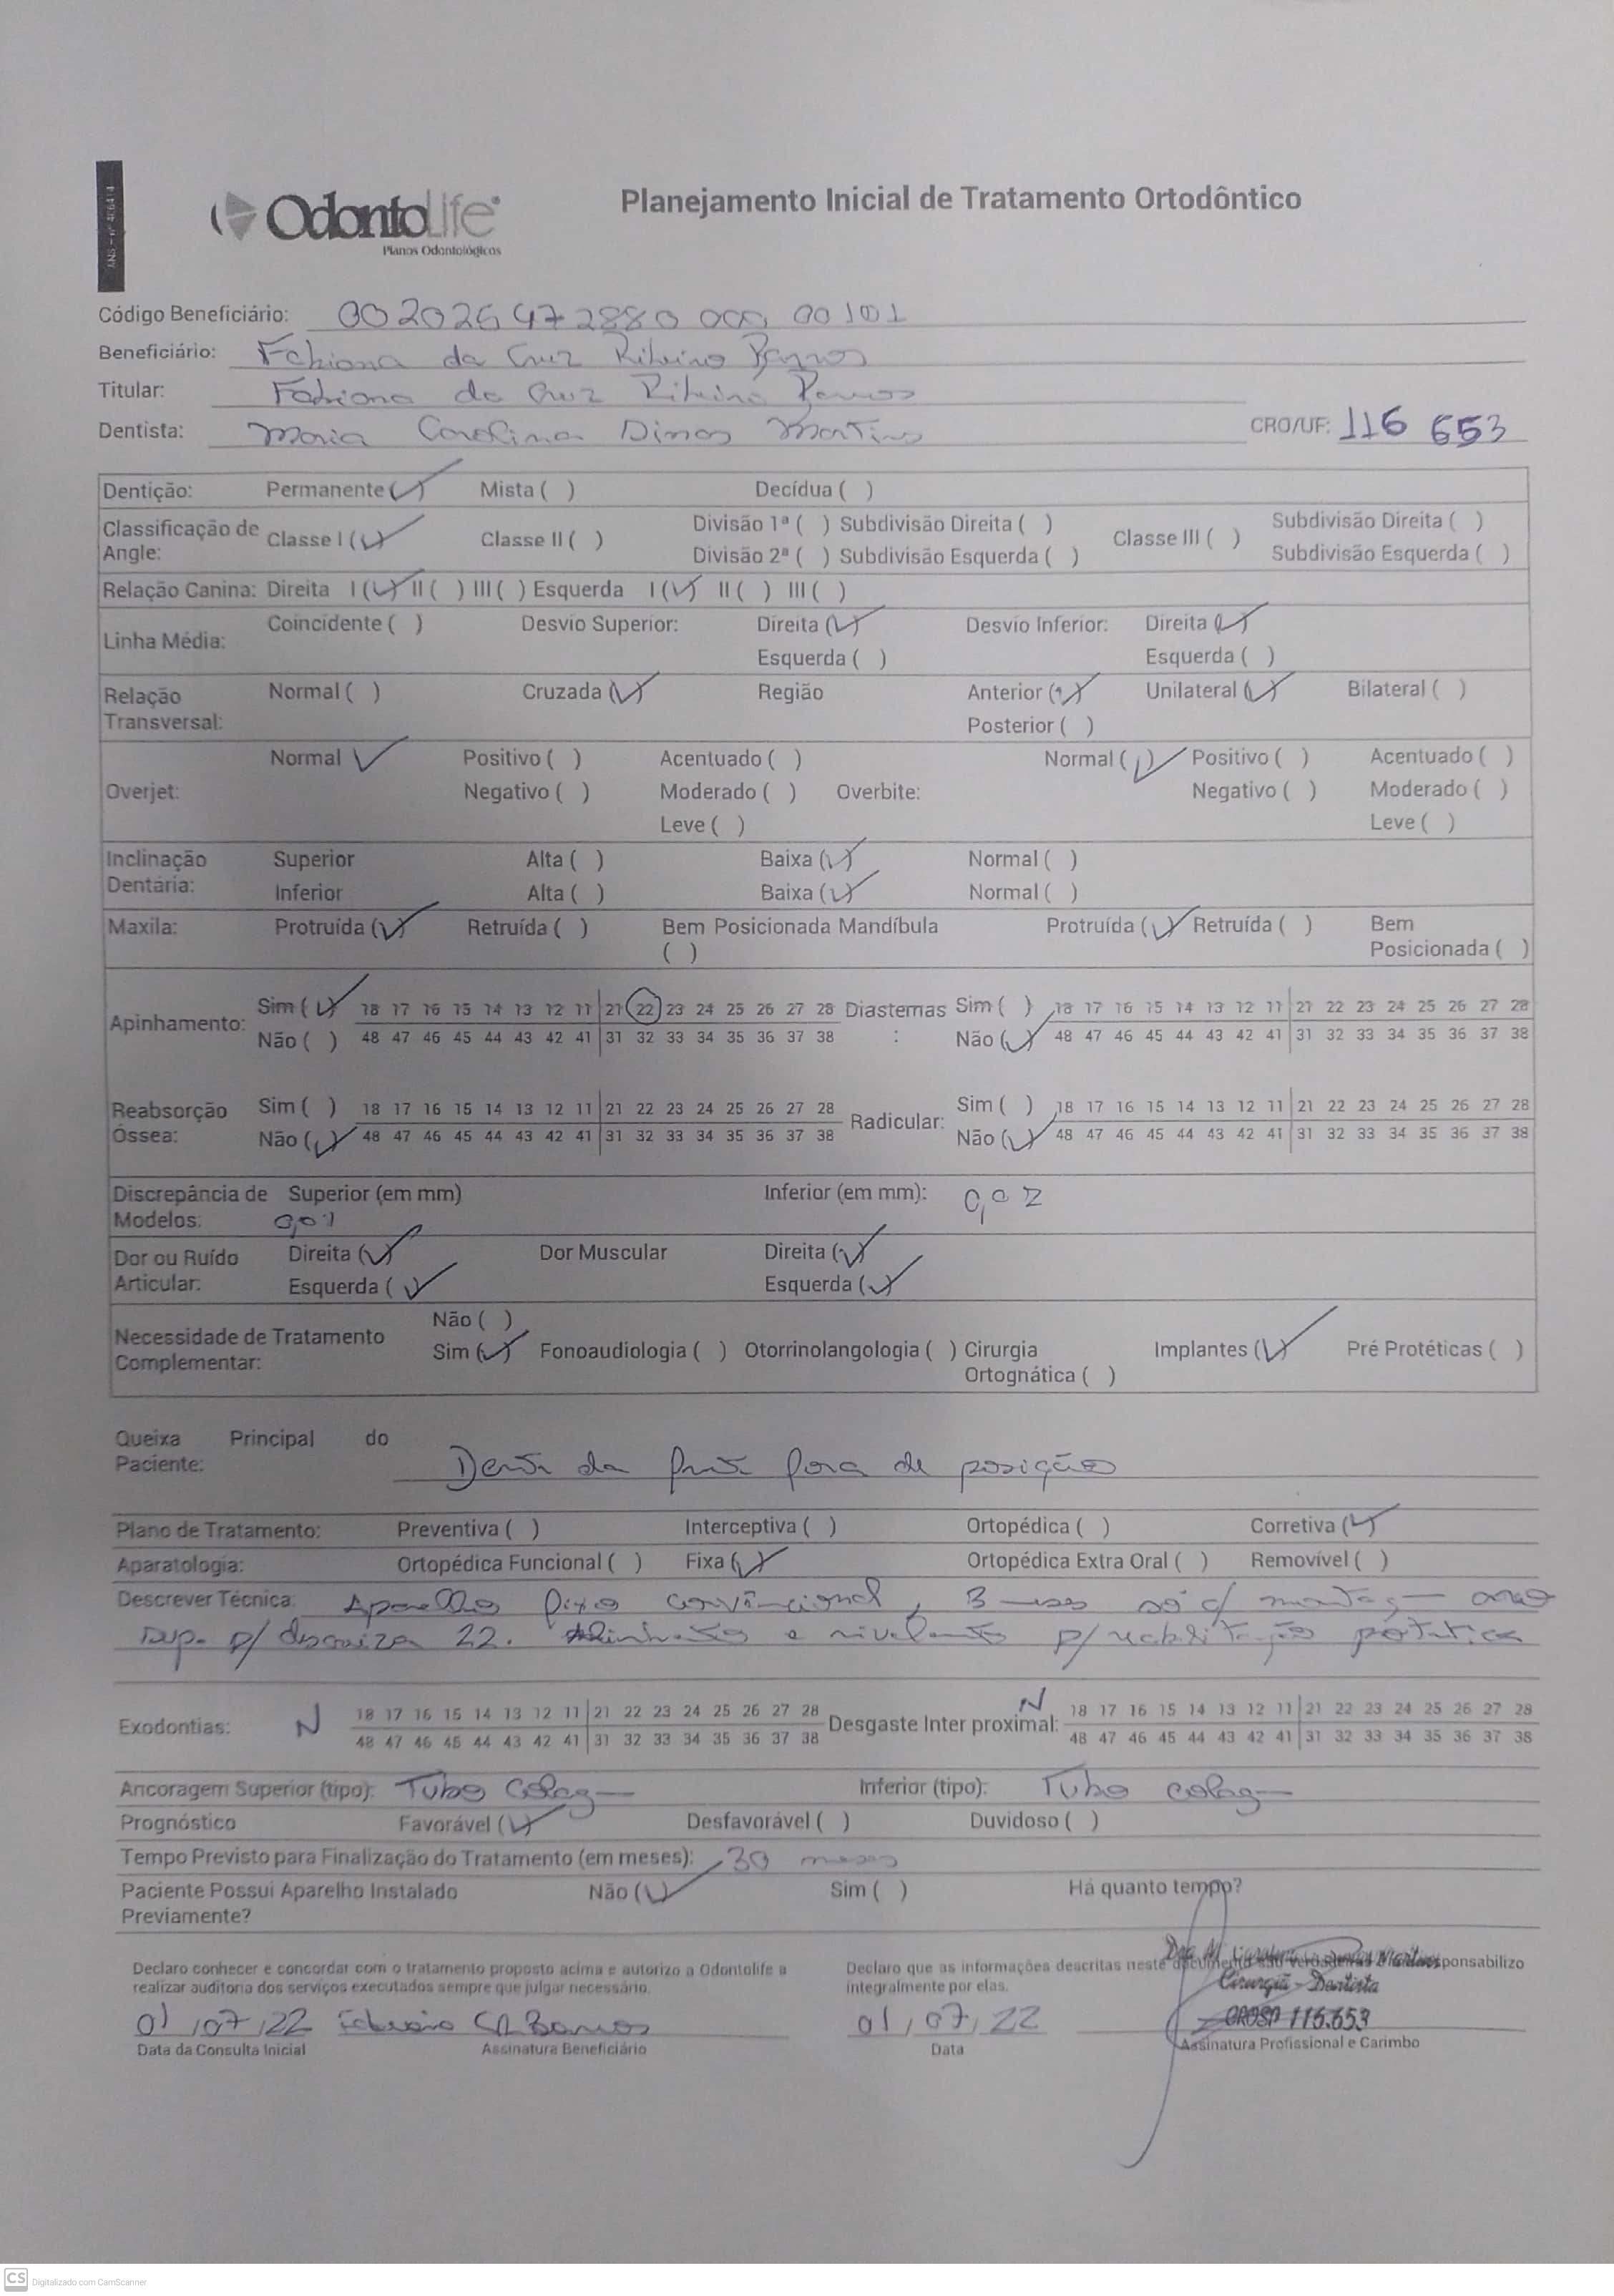 ANS - nº 40641-1
OdontoLife®
Planos Odontológicos
Planejamento Inicial de Tratamento Ortodôntico
Código Beneficiário: 002025472880 000 00101
Beneficiário: Fabiana da Cruz Ribeiro Barros
Titular: Fabiana da Cruz Ribeiro Barros
Dentista: Maria Carolina Dimas Martins CRO/UF: 116 653
Dentição: Permanente (✓) Mista ( ) Decídua ( )
Classificação de Angle: Classe I (✓) Classe II ( ) Divisão 1ª ( ) Subdivisão Direita ( ) Classe III ( ) Subdivisão Direita ( )
Divisão 2ª ( ) Subdivisão Esquerda ( ) Subdivisão Esquerda ( )
Relação Canina: Direita I (✓) II ( ) III ( ) Esquerda I (✓) II ( ) III ( )
Linha Média: Coincidente ( ) Desvio Superior: Direita (✓) Desvio Inferior: Direita (✓)
Esquerda ( ) Esquerda ( )
Relação Transversal: Normal ( ) Cruzada (✓) Região Anterior (✓) Unilateral (✓) Bilateral ( )
Posterior ( )
Normal ✓ Positivo ( ) Acentuado ( ) Normal (✓) Positivo ( ) Acentuado ( )
Overjet: Negativo ( ) Moderado ( ) Overbite: Negativo ( ) Moderado ( )
Leve ( ) Leve ( )
Inclinação Dentária: Superior Alta ( ) Baixa (✓) Normal ( )
Inferior Alta ( ) Baixa (✓) Normal ( )
Maxila: Protruída (✓) Retruída ( ) Bem Posicionada ( ) Mandíbula Protruída (✓) Retruída ( ) Bem Posicionada ( )
Apinhamento: Sim (✓) 18 17 16 15 14 13 12 11 21 22 23 24 25 26 27 28 Diastemas : Sim ( ) 18 17 16 15 14 13 12 11 21 22 23 24 25 26 27 28
Não ( ) 48 47 46 45 44 43 42 41 31 32 33 34 35 36 37 38 Não (✓) 48 47 46 45 44 43 42 41 31 32 33 34 35 36 37 38
Reabsorção Óssea: Sim ( ) 18 17 16 15 14 13 12 11 21 22 23 24 25 26 27 28 Radicular: Sim ( ) 18 17 16 15 14 13 12 11 21 22 23 24 25 26 27 28
Não (✓) 48 47 46 45 44 43 42 41 31 32 33 34 35 36 37 38 Não (✓) 48 47 46 45 44 43 42 41 31 32 33 34 35 36 37 38
Discrepância de Modelos: Superior (em mm) 0,01 Inferior (em mm): 0,02
Dor ou Ruído Articular: Direita (✓) Dor Muscular Direita (✓)
Esquerda (✓) Esquerda (✓)
Não ( )
Necessidade de Tratamento Complementar: Sim (✓) Fonoaudiologia ( ) Otorrinolangologia ( ) Cirurgia Ortognática ( ) Implantes (✓) Pré Protéticas ( )
Queixa Principal do Paciente: Dente da frente fora de posição
Plano de Tratamento: Preventiva ( ) Interceptiva ( ) Ortopédica ( ) Corretiva (✓)
Aparatologia: Ortopédica Funcional ( ) Fixa (✓) Ortopédica Extra Oral ( ) Removível ( )
Descrever Técnica: Aparelho fixo convencional, 3 meses só c/ montag arco
sup. p/ 22. Alinhamento e nivelamento p/ reabilitação protética
Exodontias: N 18 17 16 15 14 13 12 11 21 22 23 24 25 26 27 28 Desgaste Inter proximal: N 18 17 16 15 14 13 12 11 21 22 23 24 25 26 27 28
48 47 46 45 44 43 42 41 31 32 33 34 35 36 37 38 48 47 46 45 44 43 42 41 31 32 33 34 35 36 37 38
Ancoragem Superior (tipo): Tubo colag Inferior (tipo): Tubo colag
Prognóstico Favorável (✓) Desfavorável ( ) Duvidoso ( )
Tempo Previsto para Finalização do Tratamento (em meses): 30 meses
Paciente Possui Aparelho Instalado Previamente? Não (✓) Sim ( ) Há quanto tempo?
Declaro conhecer e concordar com o tratamento proposto acima e autorizo a Odontolife a
realizar auditoria dos serviços executados sempre que julgar necessário.
Declaro que as informações descritas neste documento são verdadeiras responsabilizo
integralmente por elas.
Dra. M Carolina Dimas Martins
Cirurgiã - Dentista
CROSP 116.653
01/07/22 Fabiana CR Barros 01/07/22
Data da Consulta Inicial Assinatura Beneficiário Data Assinatura Profissional e Carimbo
CS Digitalizado com CamScanner